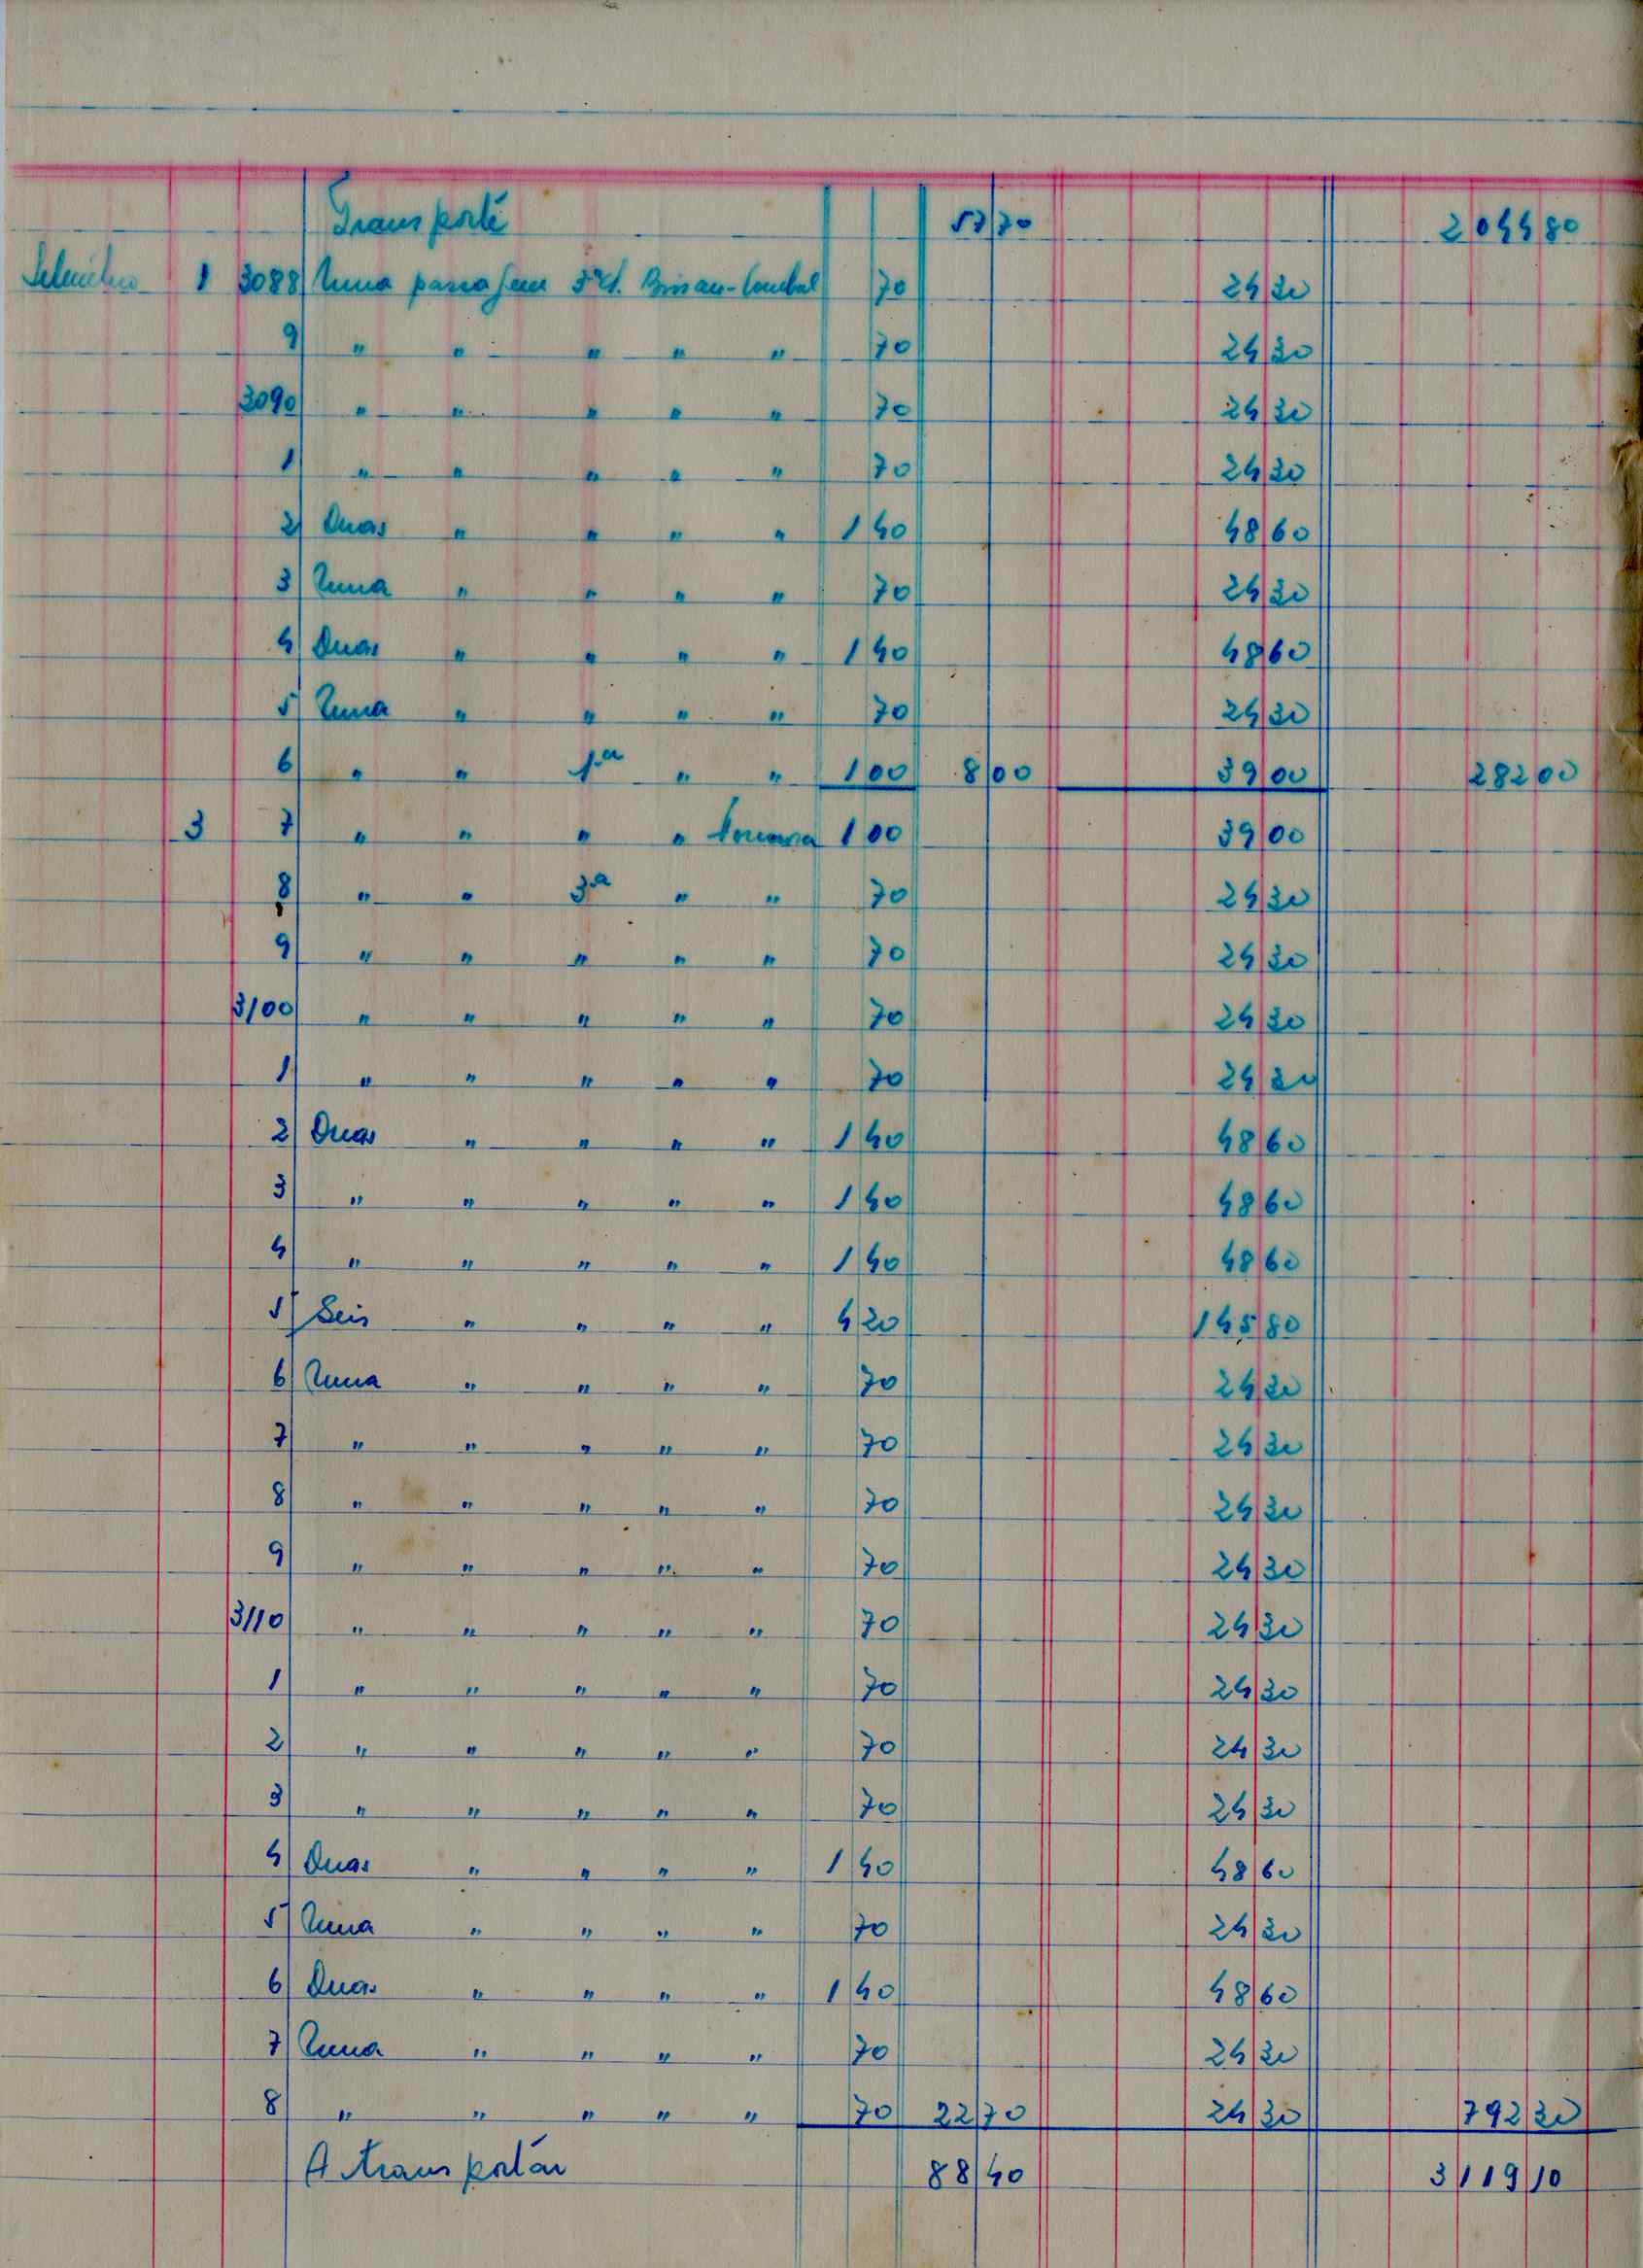 Transporte 57 70 2 044 80
Setembro 1 3088 Uma passagem 3ª cl. Bissau- 70 24 30
9 " " " " " 70 24 30
3090 " " " " " 70 24 30
1 " " " " " 70 24 30
2 Duas " " " " 1 40 48 60
3 Uma " " " " 70 24 30
4 Duas " " " " 1 40 48 60
5 Uma " " " " 70 24 30
6 " " 1ª " " 1 00 8 00 39 00 282 00
3 7 " " " " 1 00 39 00
8 " " 3ª " " 70 24 30
9 " " " " " 70 24 30
3100 " " " " " 70 24 30
1 " " " " " 70 24 30
2 Duas " " " " 1 40 48 60
3 " " " " " 1 40 48 60
4 " " " " " 1 40 48 60
5 Seis " " " " 4 20 145 80
6 Uma " " " " 70 24 30
7 " " " " " 70 24 30
8 " " " " " 70 24 30
9 " " " " " 70 24 30
3110 " " " " " 70 24 30
1 " " " " " 70 24 30
2 " " " " " 70 24 30
3 " " " " " 70 24 30
4 Duas " " " " 1 40 48 60
5 Uma " " " " 70 24 30
6 Duas " " " " 1 40 48 60
7 Uma " " " " 70 24 30
8 " " " " " 70 22 70 24 30 792 30
A transportar 88 40 3 119 10